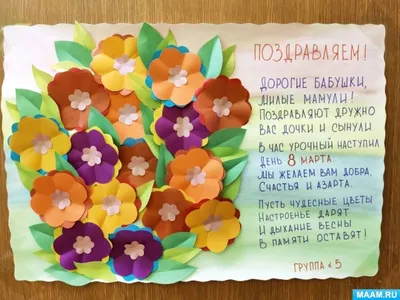 ПОЗДРАВЛЯЕМ!
ДОРОГИЕ БАБУШКИ,
МИЛЫЕ МАМУЛИ!
ПОЗДРАВЛЯЮТ ДРУЖНО
ВАС ДОЧКИ И СЫНУЛИ
В ЧАС УРОЧНЫЙ НАСТУПИЛ
ДЕНЬ 8 МАРТА
МЫ ЖЕЛАЕМ ВАМ ДОБРА,
СЧАСТЬЯ И АЗАРТА.
ПУСТЬ ЧУДЕСНЫЕ ЦВЕТЫ
НАСТРОЕНЬЕ ДАРЯТ
И ДЫХАНИЕ ВЕСНЫ
В ПАМЯТИ ОСТАВЯТ!
ГРУППА 5
MAAM.RU